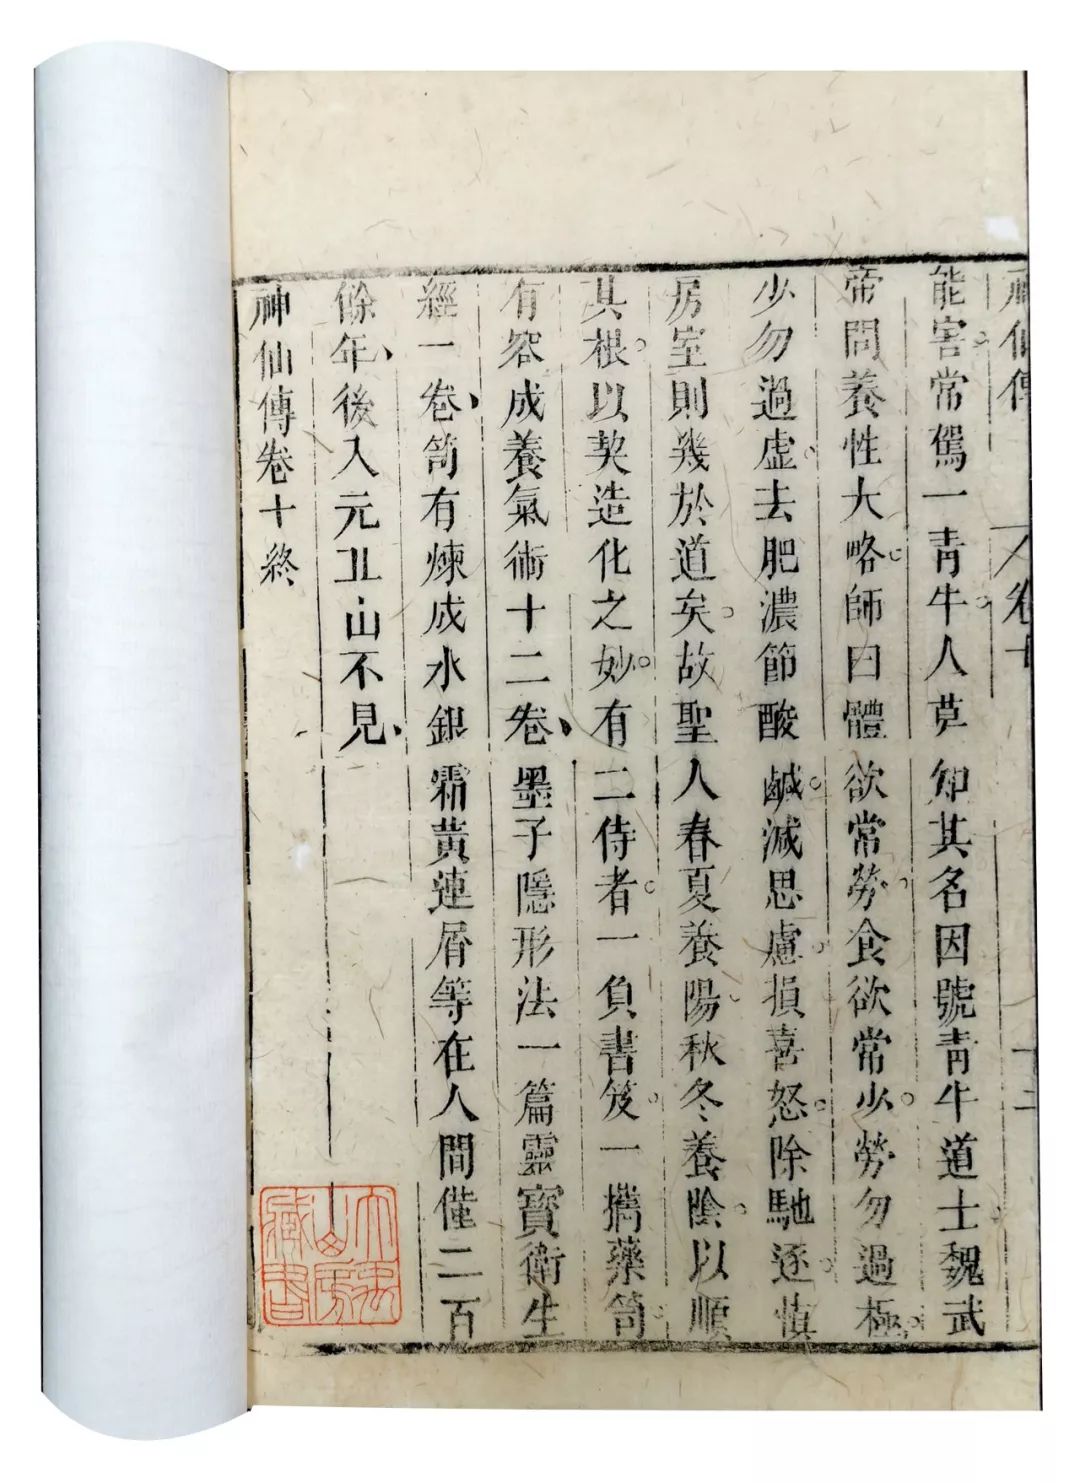 神仙傳
卷十
十二
能害常駕一青牛人莫知其名因號青牛道士魏武
帝問養性大略師曰體欲常勞食欲常少勞勿過極
少勿過虛去肥濃節酸鹹減思慮損喜怒除馳逐慎
房室則幾於道矣故聖人春夏養陽秋冬養陰以順
其根以契造化之妙有二侍者一負書笈一攜藥笥
有容成養氣術十二卷墨子隱形法一篇靈寶衛生
經一卷笥有煉成水銀霜黃連屑等在人間僅二百
餘年後入元丘山不見
神仙傳卷十終
山房
藏書